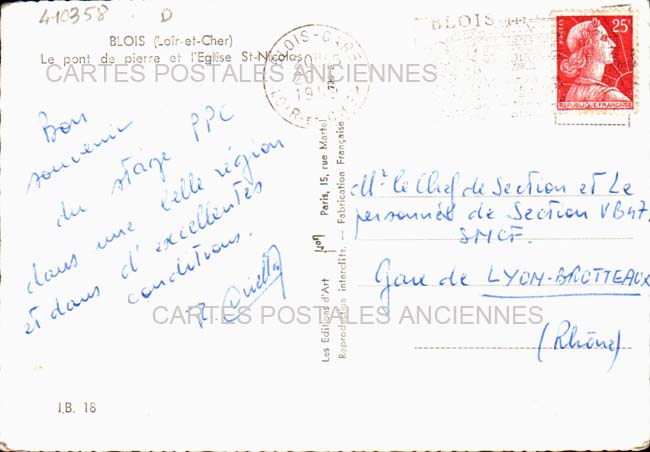 410358 D
BLOIS (Loir-et-Cher)
Le pont de pierre et l'Eglise St-Nicolas
CARTES POSTALES ANCIENNES
Bon
souvenir
du stage PPC
dans une belle région
et dans d'excellentes
conditions.
BLOIS-GARE
LOIR-ET-CHER
BLOIS
POSTES
25F
REPUBLIQUE FRANÇAISE
Les Editions d'Art Paris, 15, rue Martel
Reproduction interdite. — Fabrication Française
Mr le Chef de Section et Le
personnel de Section VB47.
SNCF.
Gare de LYON-BROTTEAUX
(Rhône)
CARTES POSTALES ANCIENNES
I.B. 18